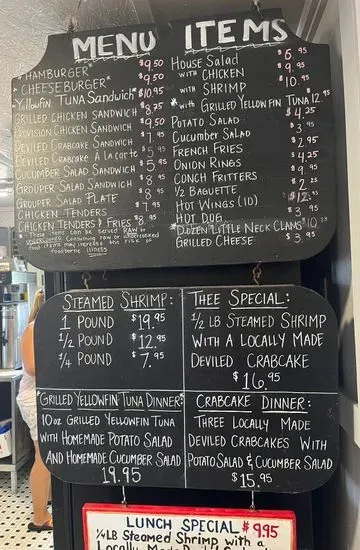 MENU ITEMS
*HAMBURGER* $9.50
*CHEESEBURGER* $9.50
*Yellowfin TUNA Sandwich* $10.95
GRILLED CHICKEN SANDWICH $8.25
Provision CHICKEN SANDWICH $9.50
DEVILED CRABCAKE SANDWICH $7.95
DEVILED CRABCAKE A la carte $5.95
CUCUMBER SALAD SANDWICH $5.95
GROUPER SALAD SANDWICH $8.95
GROUPER SALAD PLATE $8.95
CHICKEN TENDERS $7.95
CHICKEN TENDERS & FRIES $8.95
* These items can be served RAW or
UNDERCOOKED. Consuming raw or undercooked
food items may increase the risk of
foodborne illness
House Salad $6.95
with CHICKEN $9.95
with SHRIMP $10.95
*with GRILLED YELLOWFIN TUNA 12.95
POTATO SALAD $4.25
CUCUMBER SALAD $3.95
FRENCH FRIES $2.95
ONION RINGS $4.25
CONCH FRITTERS $9.95
1/2 BAGUETTE $2.25
HOT WINGS (10) $12.95
HOT DOG $3.95
*DOZEN LITTLE NECK CLAMS*
GRILLED CHEESE $3.95
STEAMED SHRIMP:
1 POUND $19.95
1/2 POUND $12.95
1/4 POUND $7.95
THEE SPECIAL:
1/2 LB STEAMED SHRIMP
WITH A LOCALLY MADE
DEVILED CRABCAKE
$16.95
*GRILLED YELLOWFIN TUNA DINNER*
10oz GRILLED YELLOWFIN TUNA
WITH HOMEMADE POTATO SALAD
AND HOMEMADE CUCUMBER SALAD
19.95
CRABCAKE DINNER:
THREE LOCALLY MADE
DEVILED CRABCAKES WITH
POTATO SALAD & CUCUMBER SALAD
$15.95
LUNCH SPECIAL $9.95
1/4 LB Steamed Shrimp with a
Locally Made